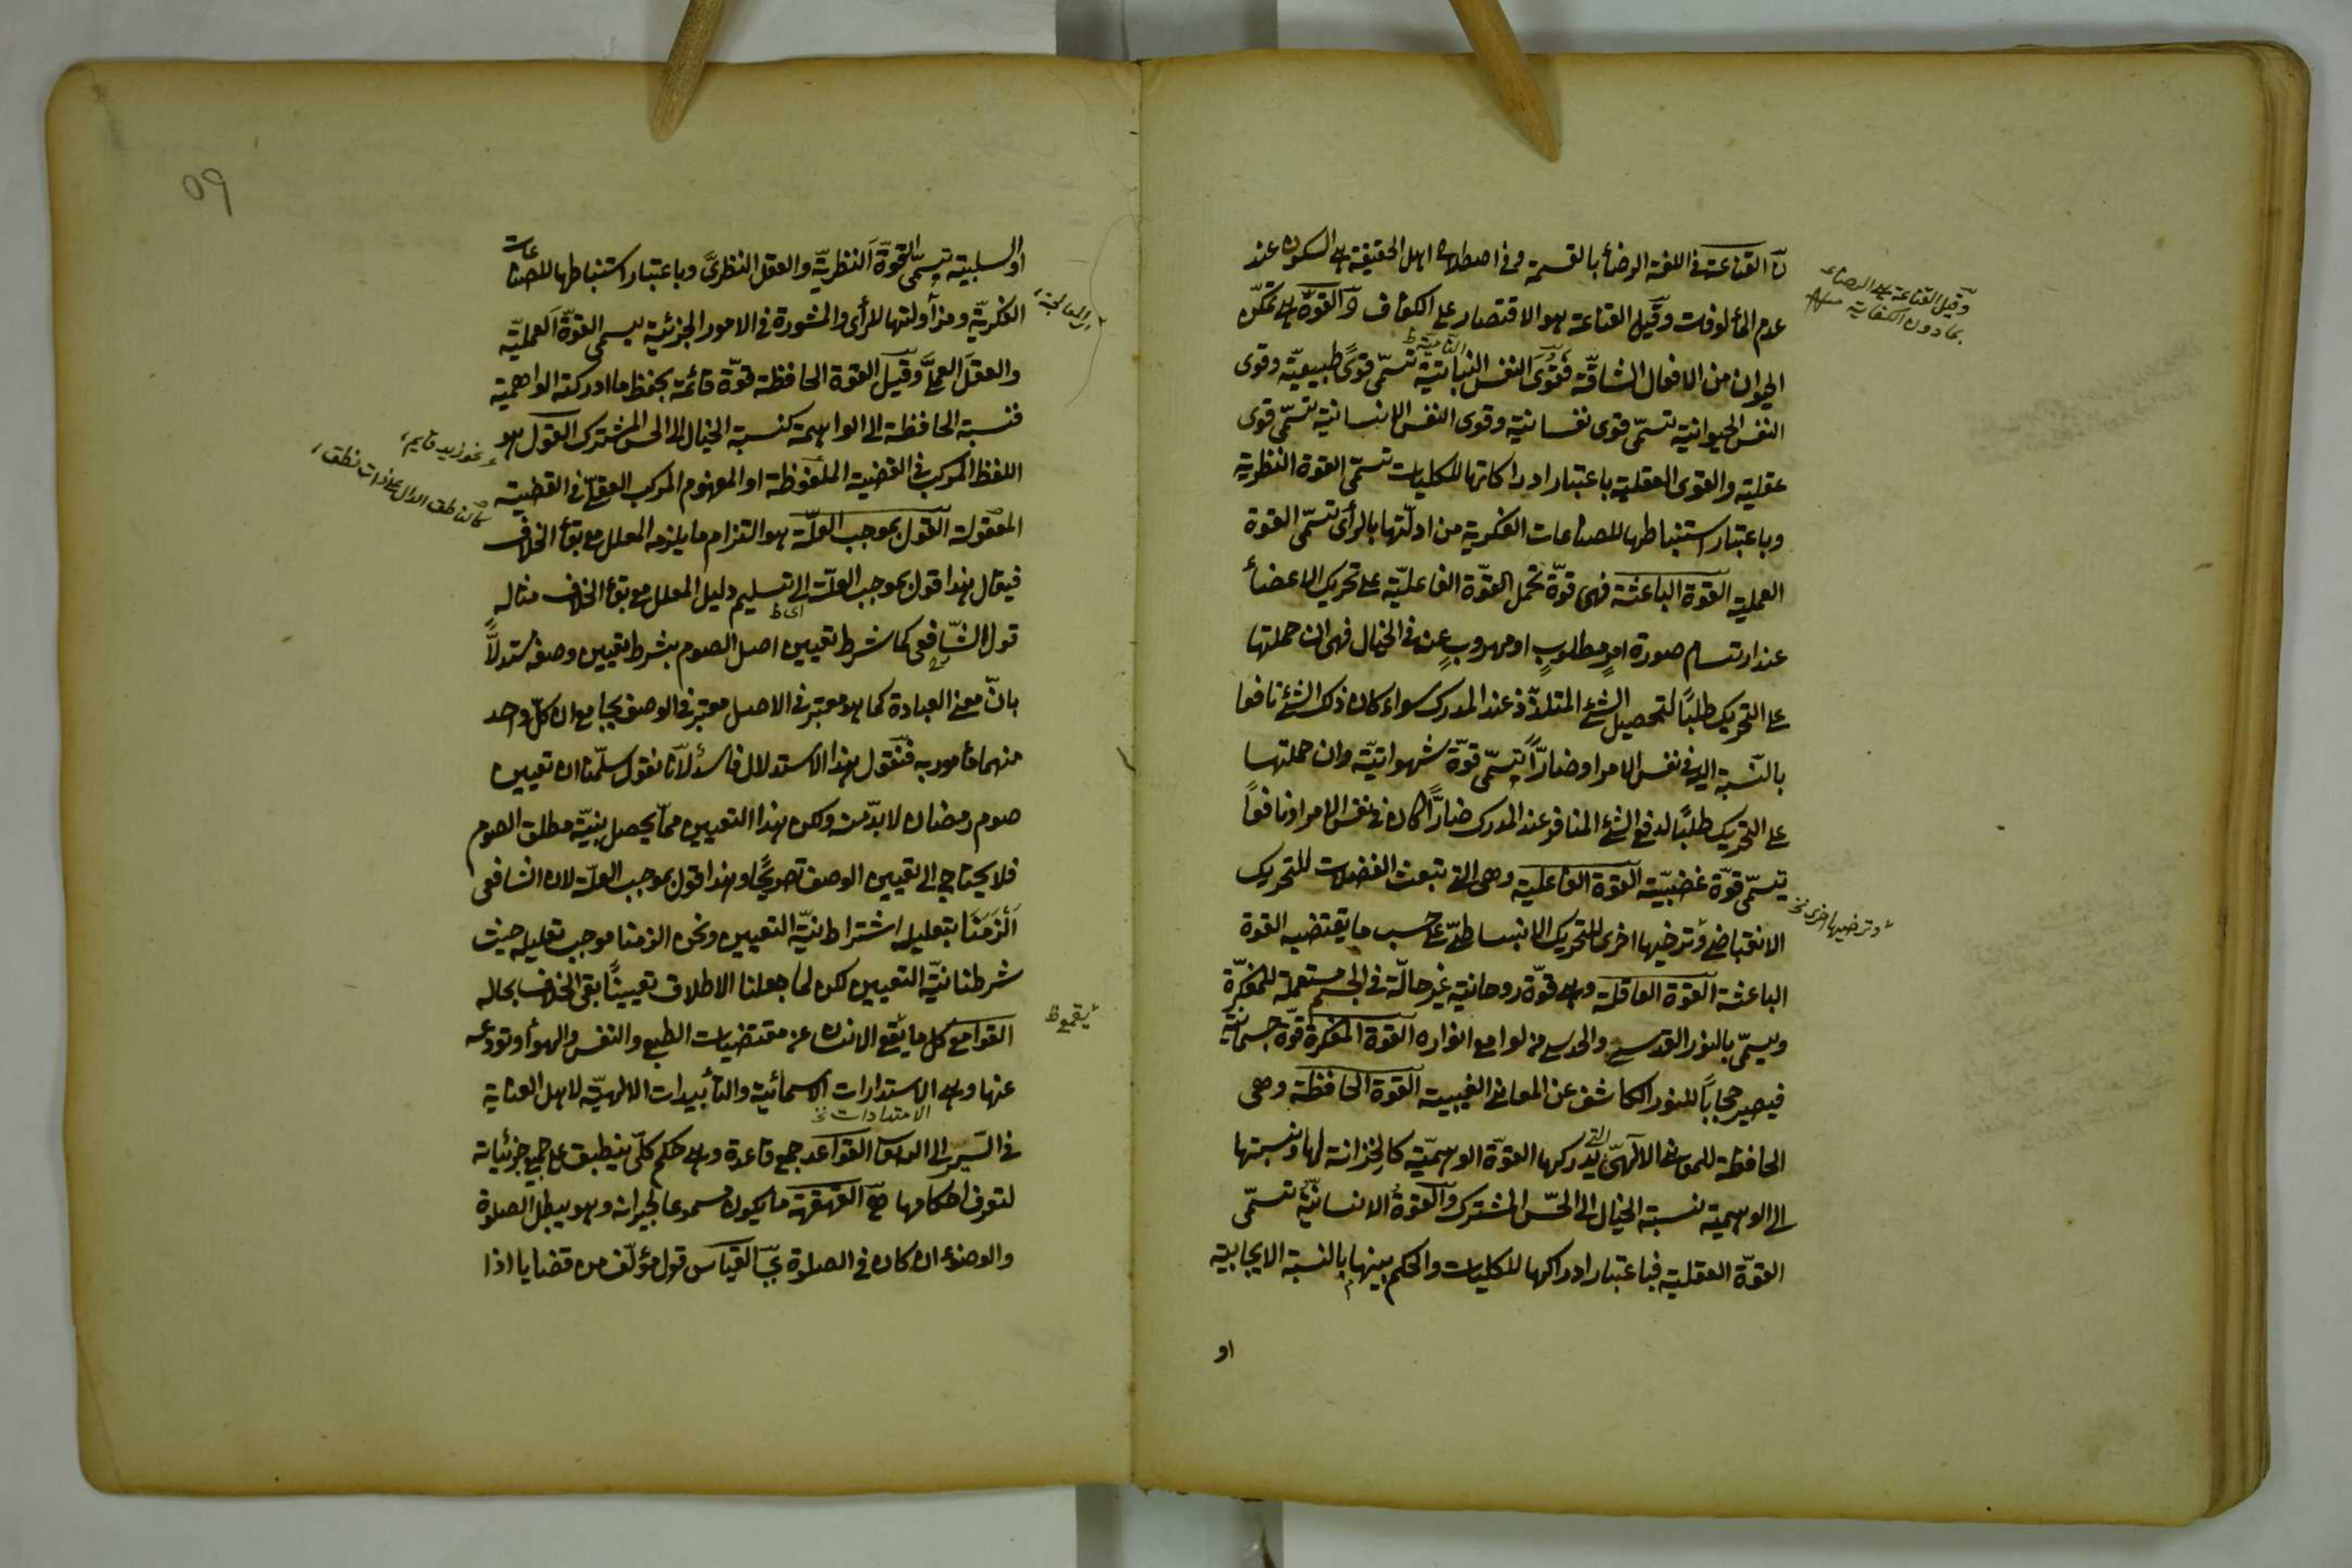 القناعة في اللغة الرضاء بالقسمة وفي اصطلاح اهل الحقيقة هي السكون عند
عدم المألوفات وقيل القناعة هو الاقتصار على الكفاف القوة هي تمكن
الحيوان من الافعال الشاقة فقوى النفس النباتية تسمّى قوىً طبيعيّة وقوى
النفس الحيوانية تسمّى قوى نفسانية وقوى النفس الانسانية تسمّى قوى
عقلية والقوى العقلية باعتبار ادراكاتها للكليات تسمّى القوة النظرية
وباعتبار استنباطها للصناعات الفكرية من ادلّتها بالرأى تسمّى القوة
العملية القوة الباعثة فهى قوّة تحمل القوّة الفاعليّة على تحريك الاعضاء
عند ارتسام صورة امرٍ مطلوبٍ او مهروبٍ عنه في الخيال فهى ان حملتها
على التحريك طلبًا لتحصيل الشئ المتلذّذ عند المدرك سواء كان ذلك الشئ نافعا
بالنسبة اليه في نفس الامر او ضارّاً تسمّى قوّة شهوانيّة وان حملتها
على التحريك طلبًا لدفع الشئ المنافر عند المدرك ضارًّا كان في نفس الامر او نافعاً
تسمّى قوّة غضبيّة القوة الفاعلية وهى التى تبعث العضلات للتحريك
الانقباضى وترخيها اخرى للتحريك الانبساطىّ على حسب ما يقتضيه القوة
الباعثة القوة العاقلة وهى قوّة روحانية غير حالّة في الجسم مستعملة للمفكّرة
ويسمّى بالنور القدسى والحدس من لوامع انواره القوة المفكرة قوّة جسمانية
فيصير حجاباً للنور الكاشف عن المعانى الغيبية القوة الحافظة وهى
الحافظة للمعانى التى يدركها القوّة الوهميّة كالخزانة لها ونسبتها
الى الوهمية نسبة الخيال الى الحسّ المشترك والقوة الانسانيّة تسمّى
القوّة العقلية فباعتبار ادراكها للكليات والحكم بينها بالنسبة الايجابية
او
وقيل القناعة هى الرضاء
بما دون الكفاية
وترخيها اخرى نخ
٥٩
او السلبية تسمّى القوّة النظريّة والعقل النظرىّ وباعتبار استنباطها للصناعات
الفكريّة ومزاولتها للرأى والمشورة في الامور الجزئية يسمى القوّة العمليّة
والعقل العملىّ وقيل القوة الحافظة قوّة قائمة بحفظ ما ادركته الواهمية
فنسبة الحافظة الى الواهمة كنسبة الخيال الى الحس المشترك القول هو
اللفظ المركب في القضية الملفوظة او المفهوم المركب العقلىّ في القضية
المعقولة القول بموجب العلّة هو التزام ما يلزمه المعلل مع بقاء الخلاف
فيقال هذا قول بموجب العلّة اى تسليم دليل المعلل مع بقاء الخلاف مثاله
قول الشّافعى كما شرط تعيين اصل الصوم بشرط تعيين وصفه مستدلاًّ
بانّ معنى العبادة كما هو معتبر في الاصل معتبر في الوصف بجامع ان كلّ واحد
منهما مأمور به فنقول هذا الاستدلال فاسد لانّا نقول سلّمنا ان تعيين
صوم رمضان لا بدّ منه ولكن هذا التعيين ممّا يحصل بنيّة مطلق الصوم
فلا يحتاج الى تعيين الوصف تصريحًا وهذا قول بموجب العلّة لان الشافعى
اَلْزَمَنَا بتعليله اشتراط نيّة التعيين ونحن الزمنا موجب تعليله حيث
شرطنا نيّة التعيين لكن لما جعلنا الاطلاق تعيينًا بقى الخلاف بحاله
القوامع كل ما يقع الانسان عن مقتضيات الطبع والنفس والهوأ وتردعه
عنها وهى الاستدارات الاسمائية والتأييدات الالهيّة لاهل العناية
الامتدادات نخ
في السّير الى الله القواعد جمع قاعدة وهى حكم كلّى ينطبق على جميع جزئياته
لتعرف احكامها القهقهة ما يكون مسموعا لجيرانه وهو يبطل الصلوة
والوضوء ان كان في الصلوة القياس قول مؤلّف من قضايا اذا
نحو زيد قايم
كالناطق الدال على ذات نطق
يقمع ظ